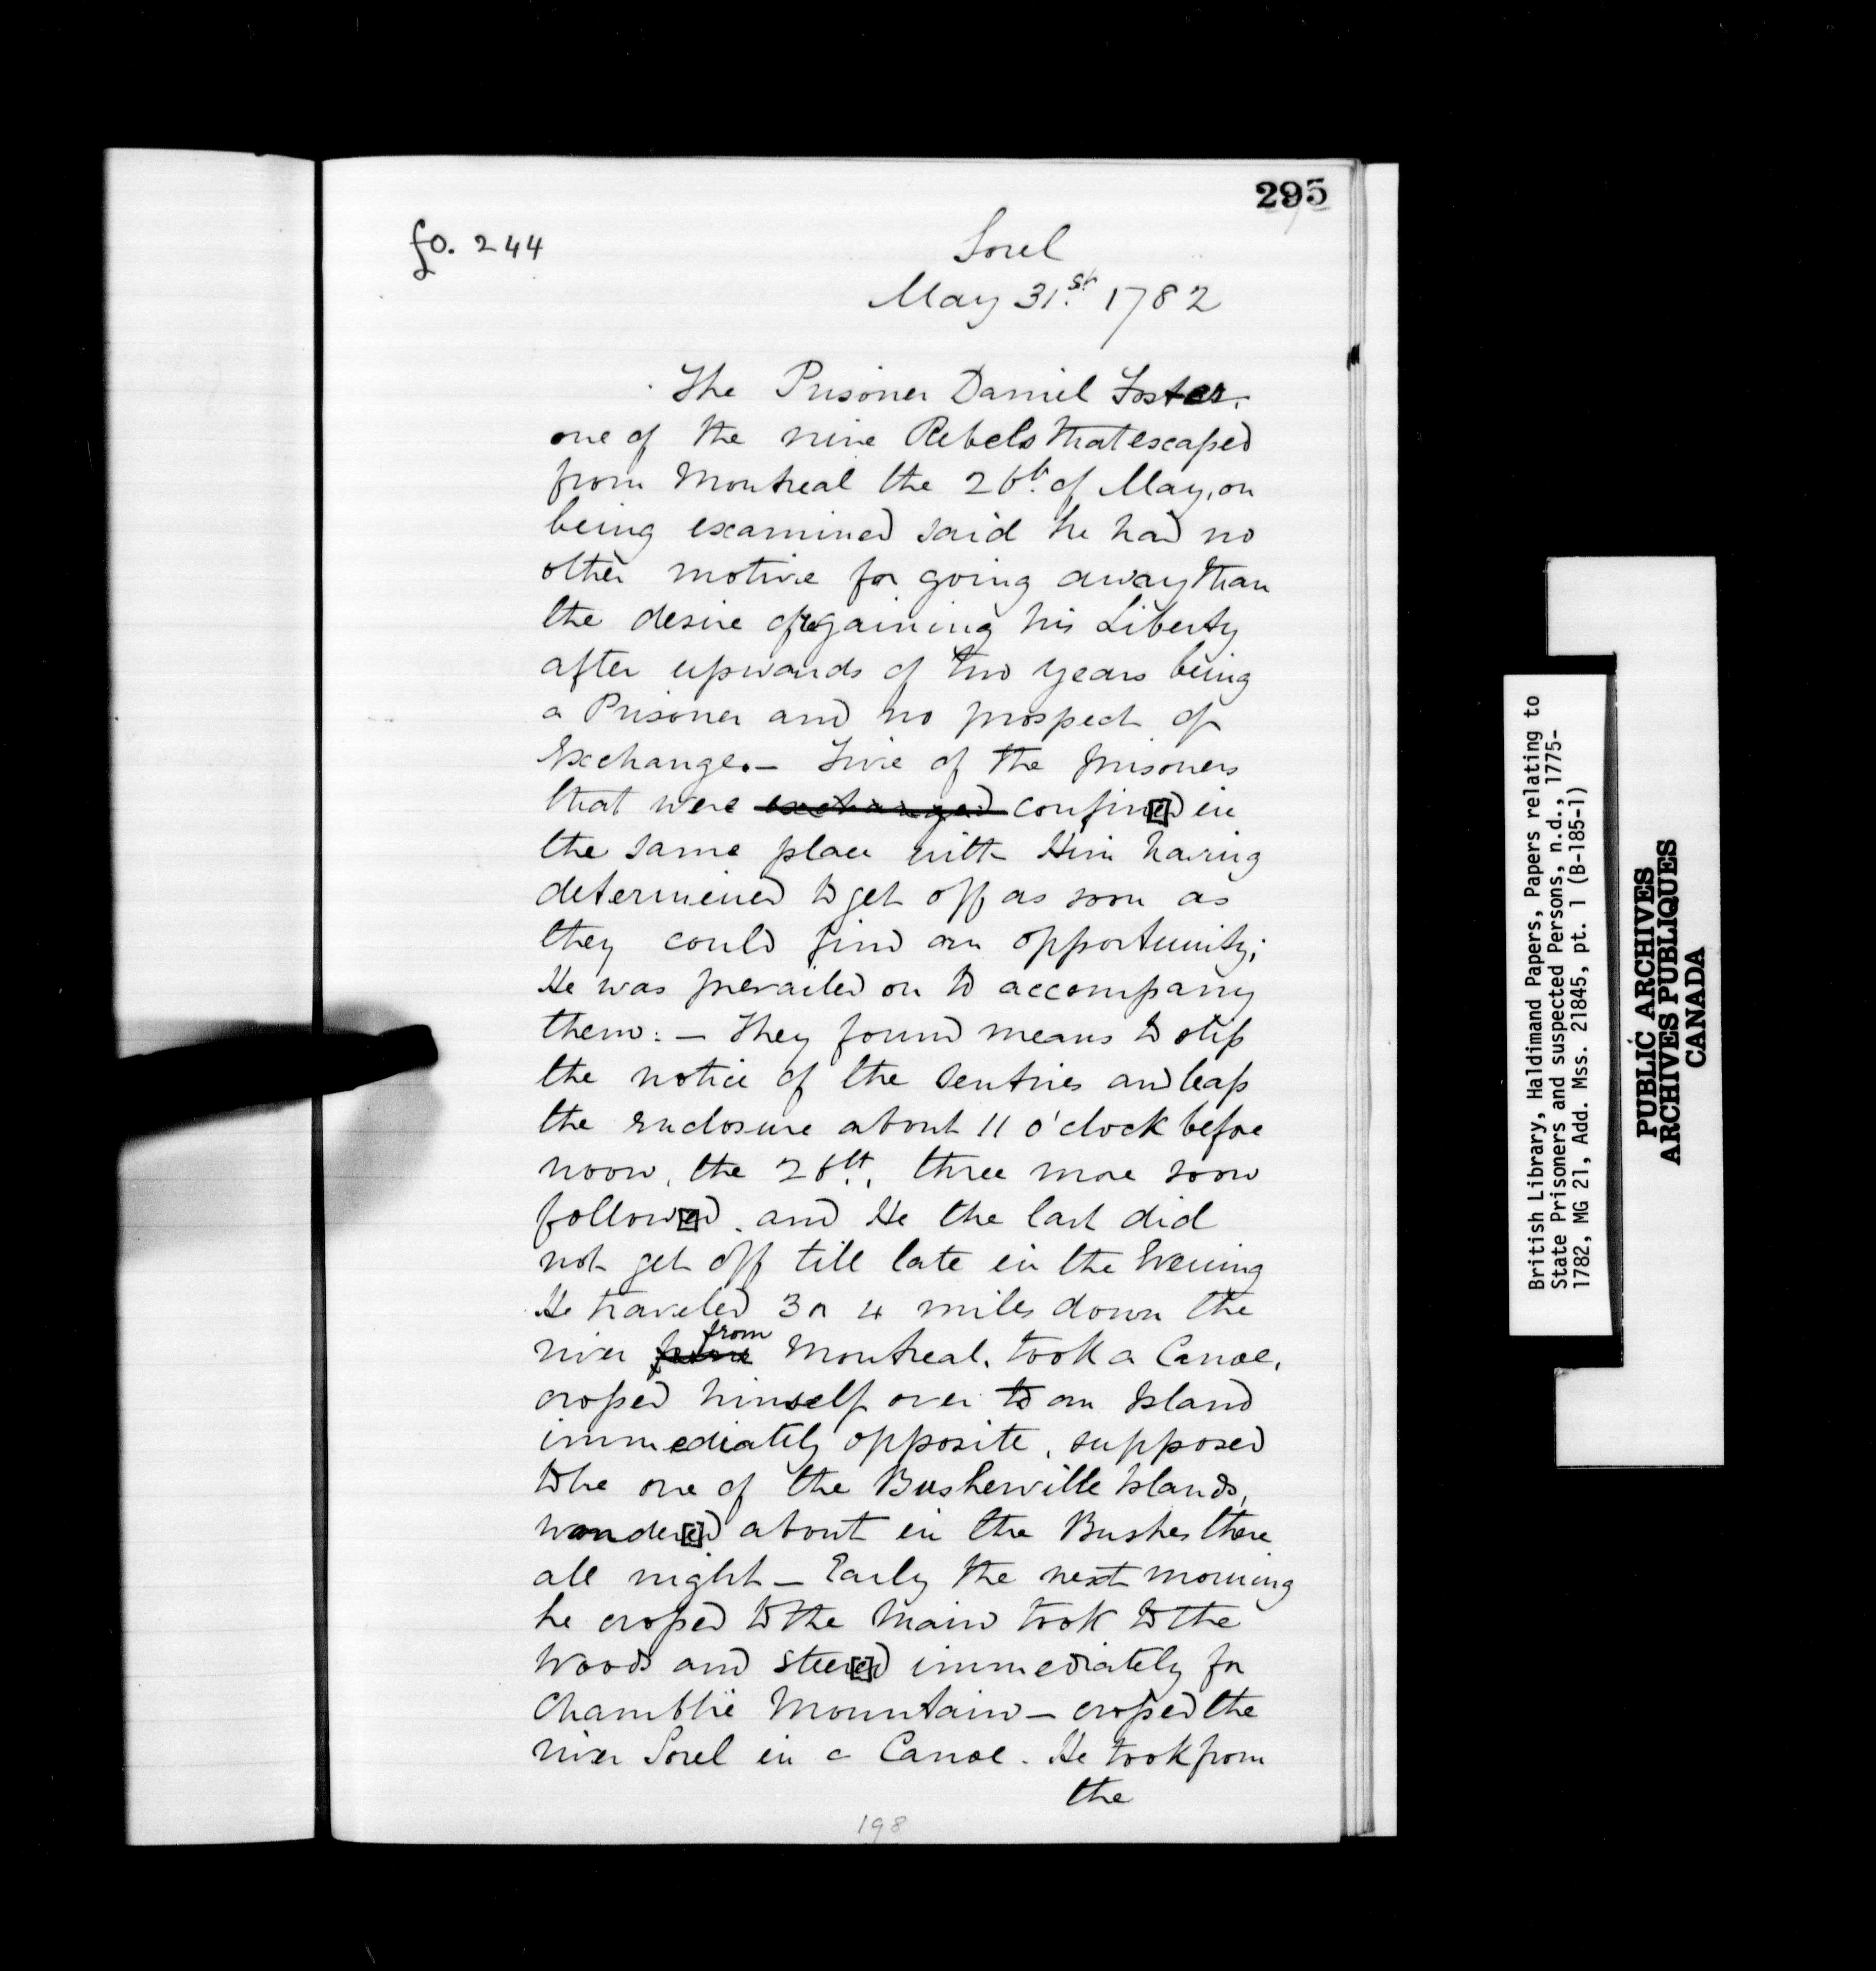 295
fo. 244
Sorel
May 31.st 1782
The Prisoner Daniel Foster,
one of the nine Rebels that escaped
from Montreal the 26th. of May, on
being examined said he had no
other motive for going away than
the desire of regaining his Liberty
after upwards of two years being
a Prisoner and no prospect of
Exchange.— Five of the prisoners
that were exchanged confin[e]d in
the same place with Him having
determined to get off as soon as
they could find an opportunity;
He was prevailed on to accompany
them:— They found means to slip
the notice of the Sentries and leap
the enclosure about 11 o'clock before
noon, the 26th., three more soon
follow[e]d. and He the last did
not get off till late in the Evening
He traveled 3 or 4 miles down the
from
river Montreal, took a Canoe,
crossed himself over to an Island
immediately opposite, supposed
to be one of the Busherville Islands,
wander[e]d about in the Bushes there
all night — Early the next morning
he crossed to the Main took to the
Woods and steer[e]d immediately for
Chamblie Mountain — crossed the
river Sorel in a Canoe. He took from
the
198
British Library, Haldimand Papers, Papers relating to
State Prisoners and suspected Persons, n.d., 1775-
1782, MG 21, Add. Mss. 21845, pt. 1 (B-185-1)
PUBLIC ARCHIVES
ARCHIVES PUBLIQUES
CANADA